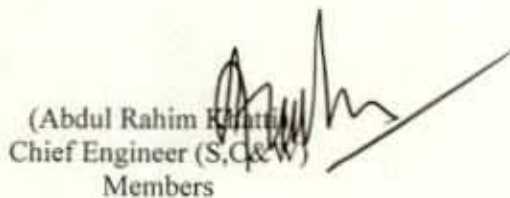 (Abdul Rahim Khatti)
Chief Engineer (S,C&W)
Members